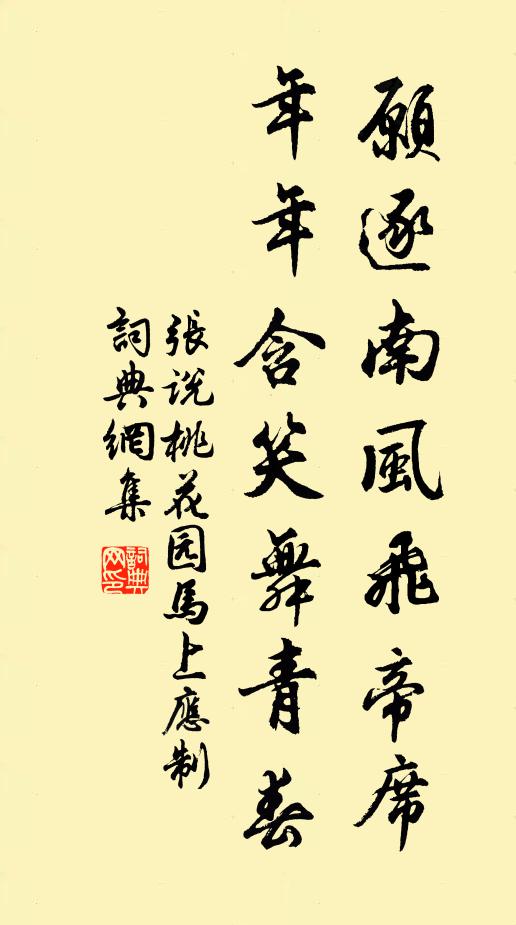 願逐南風飛帝席
年年含笑舞青春
張說桃花园馬上應制
詞典網集
詞典网印